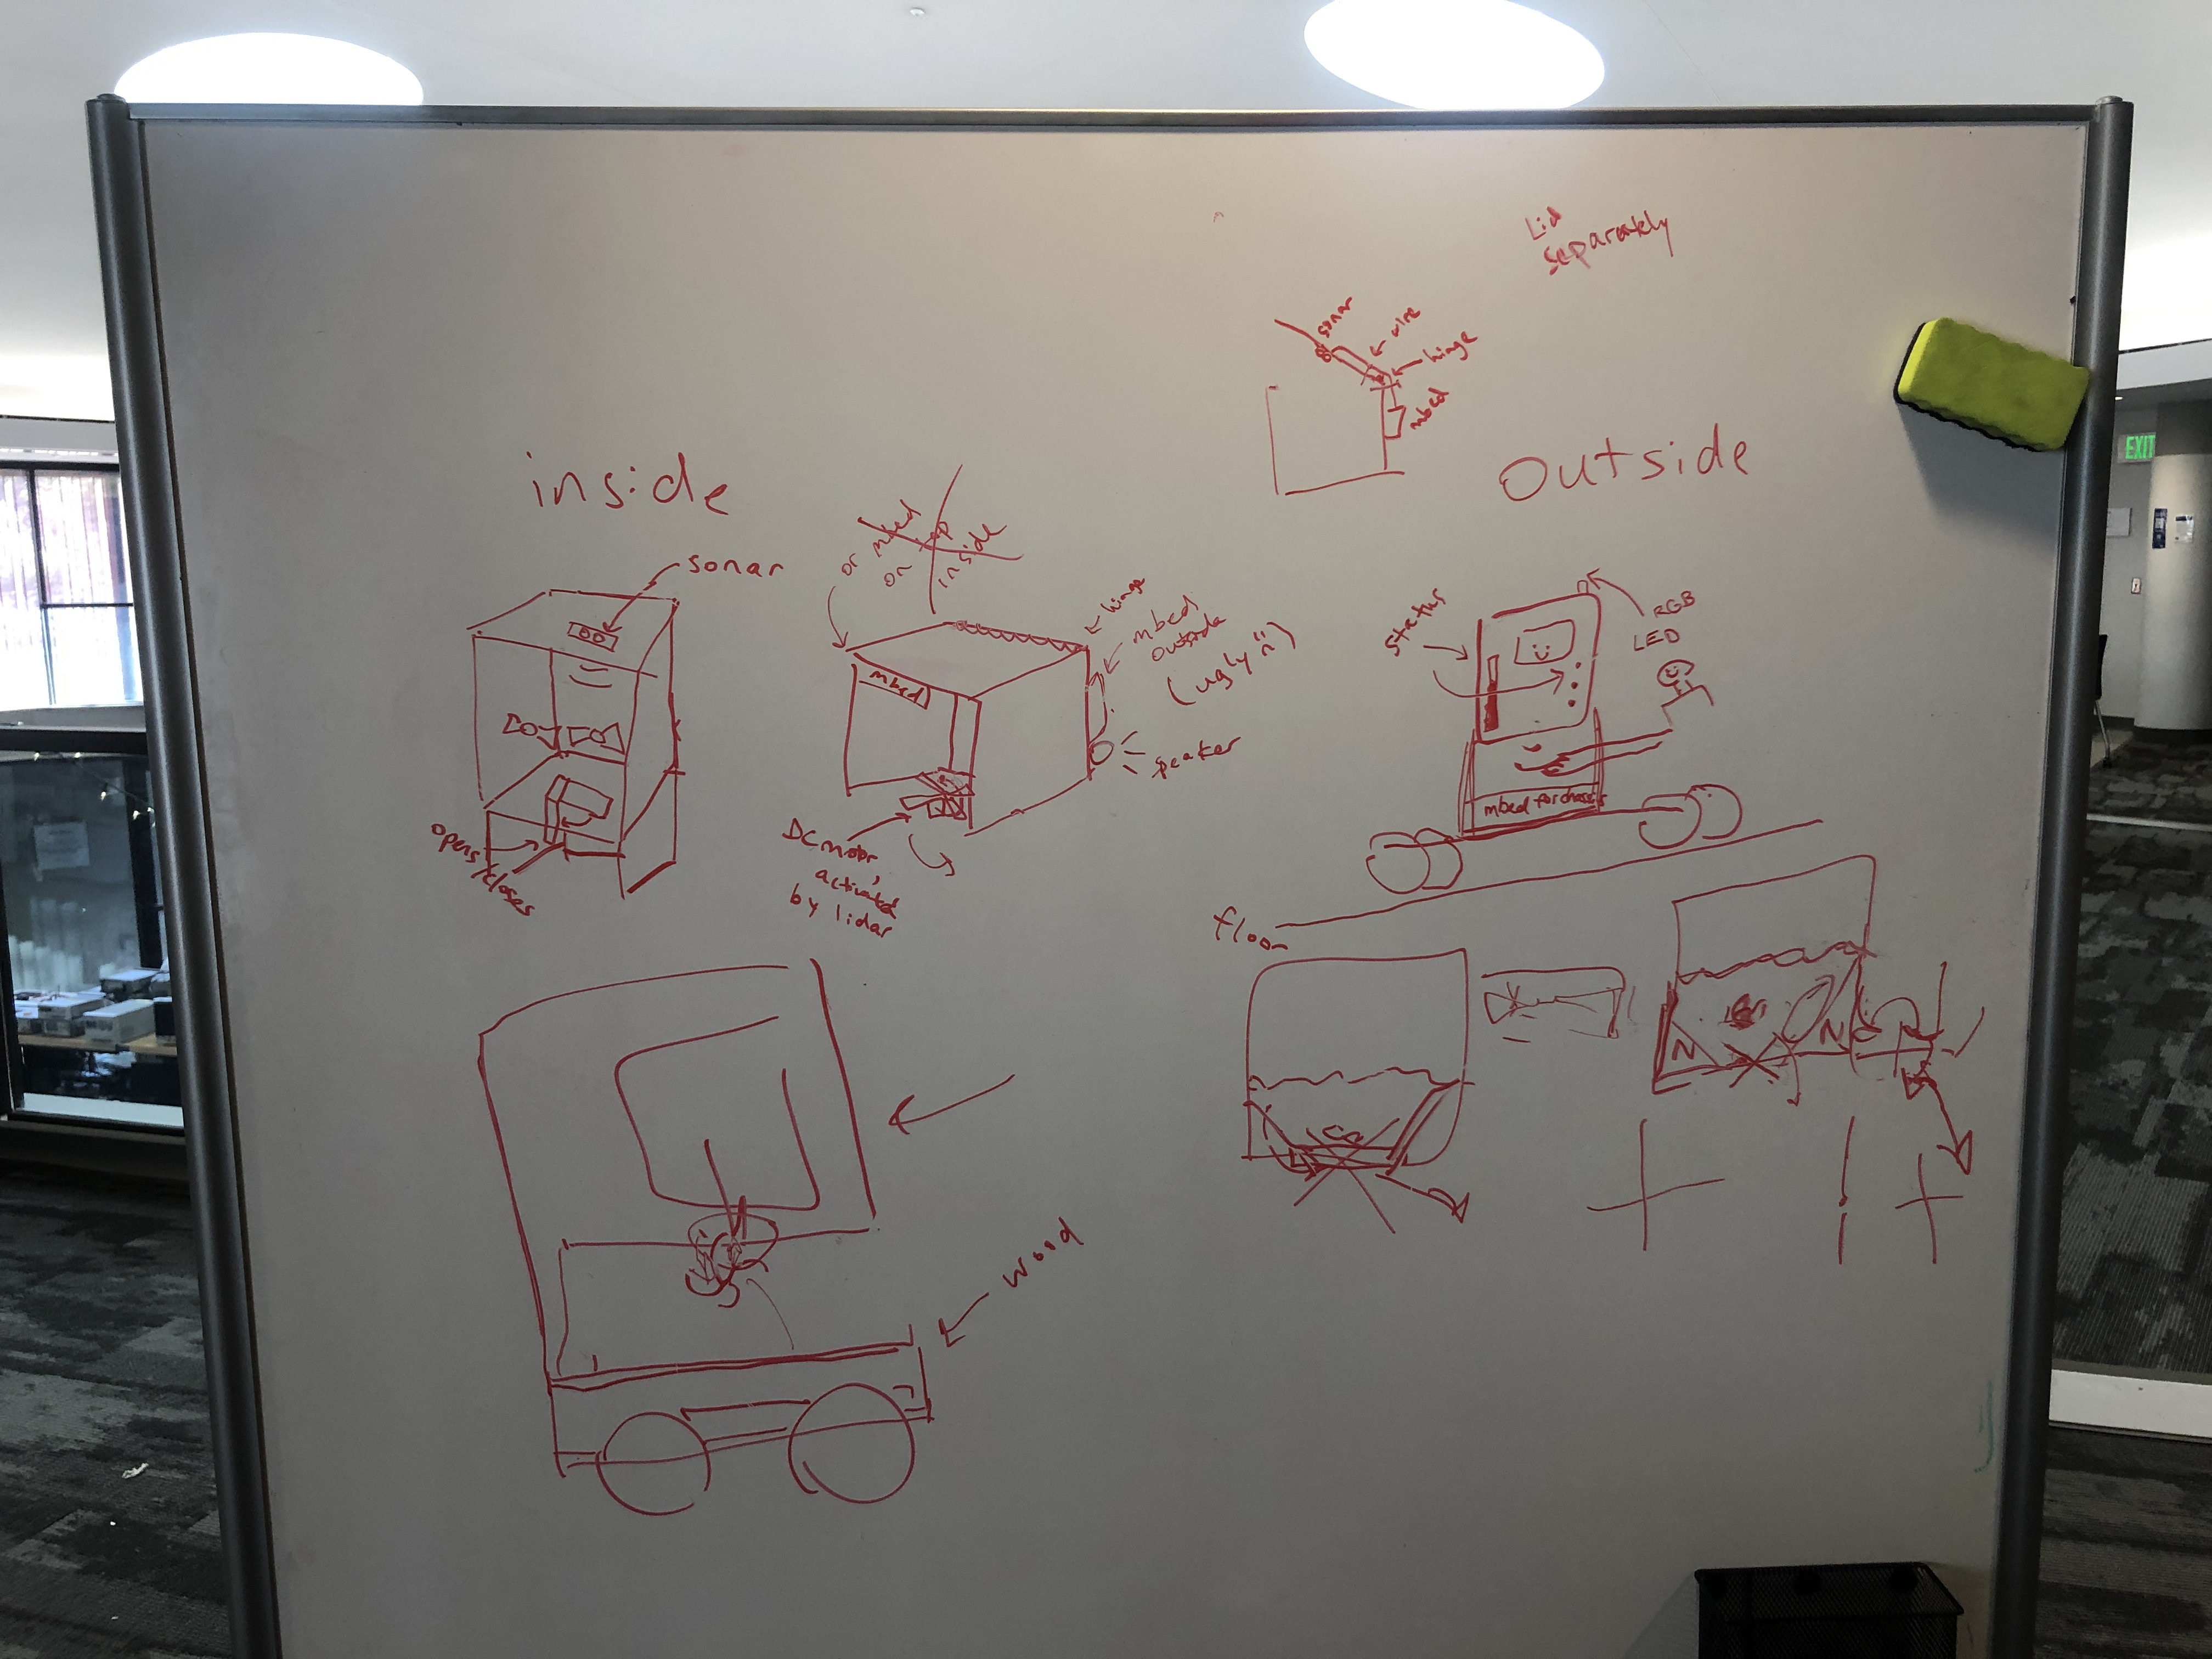 Lid
Separately
sonar
wire
hinge
mbed
inside
outside
sonar
or mbed
on top
inside
hinge
mbed
outside
(ugly :()
mbed
speaker
opens/closes
DC motor,
activated
by lidar
status
RGB
LED
mbed for chassis
floor
wood
N
N
EXIT